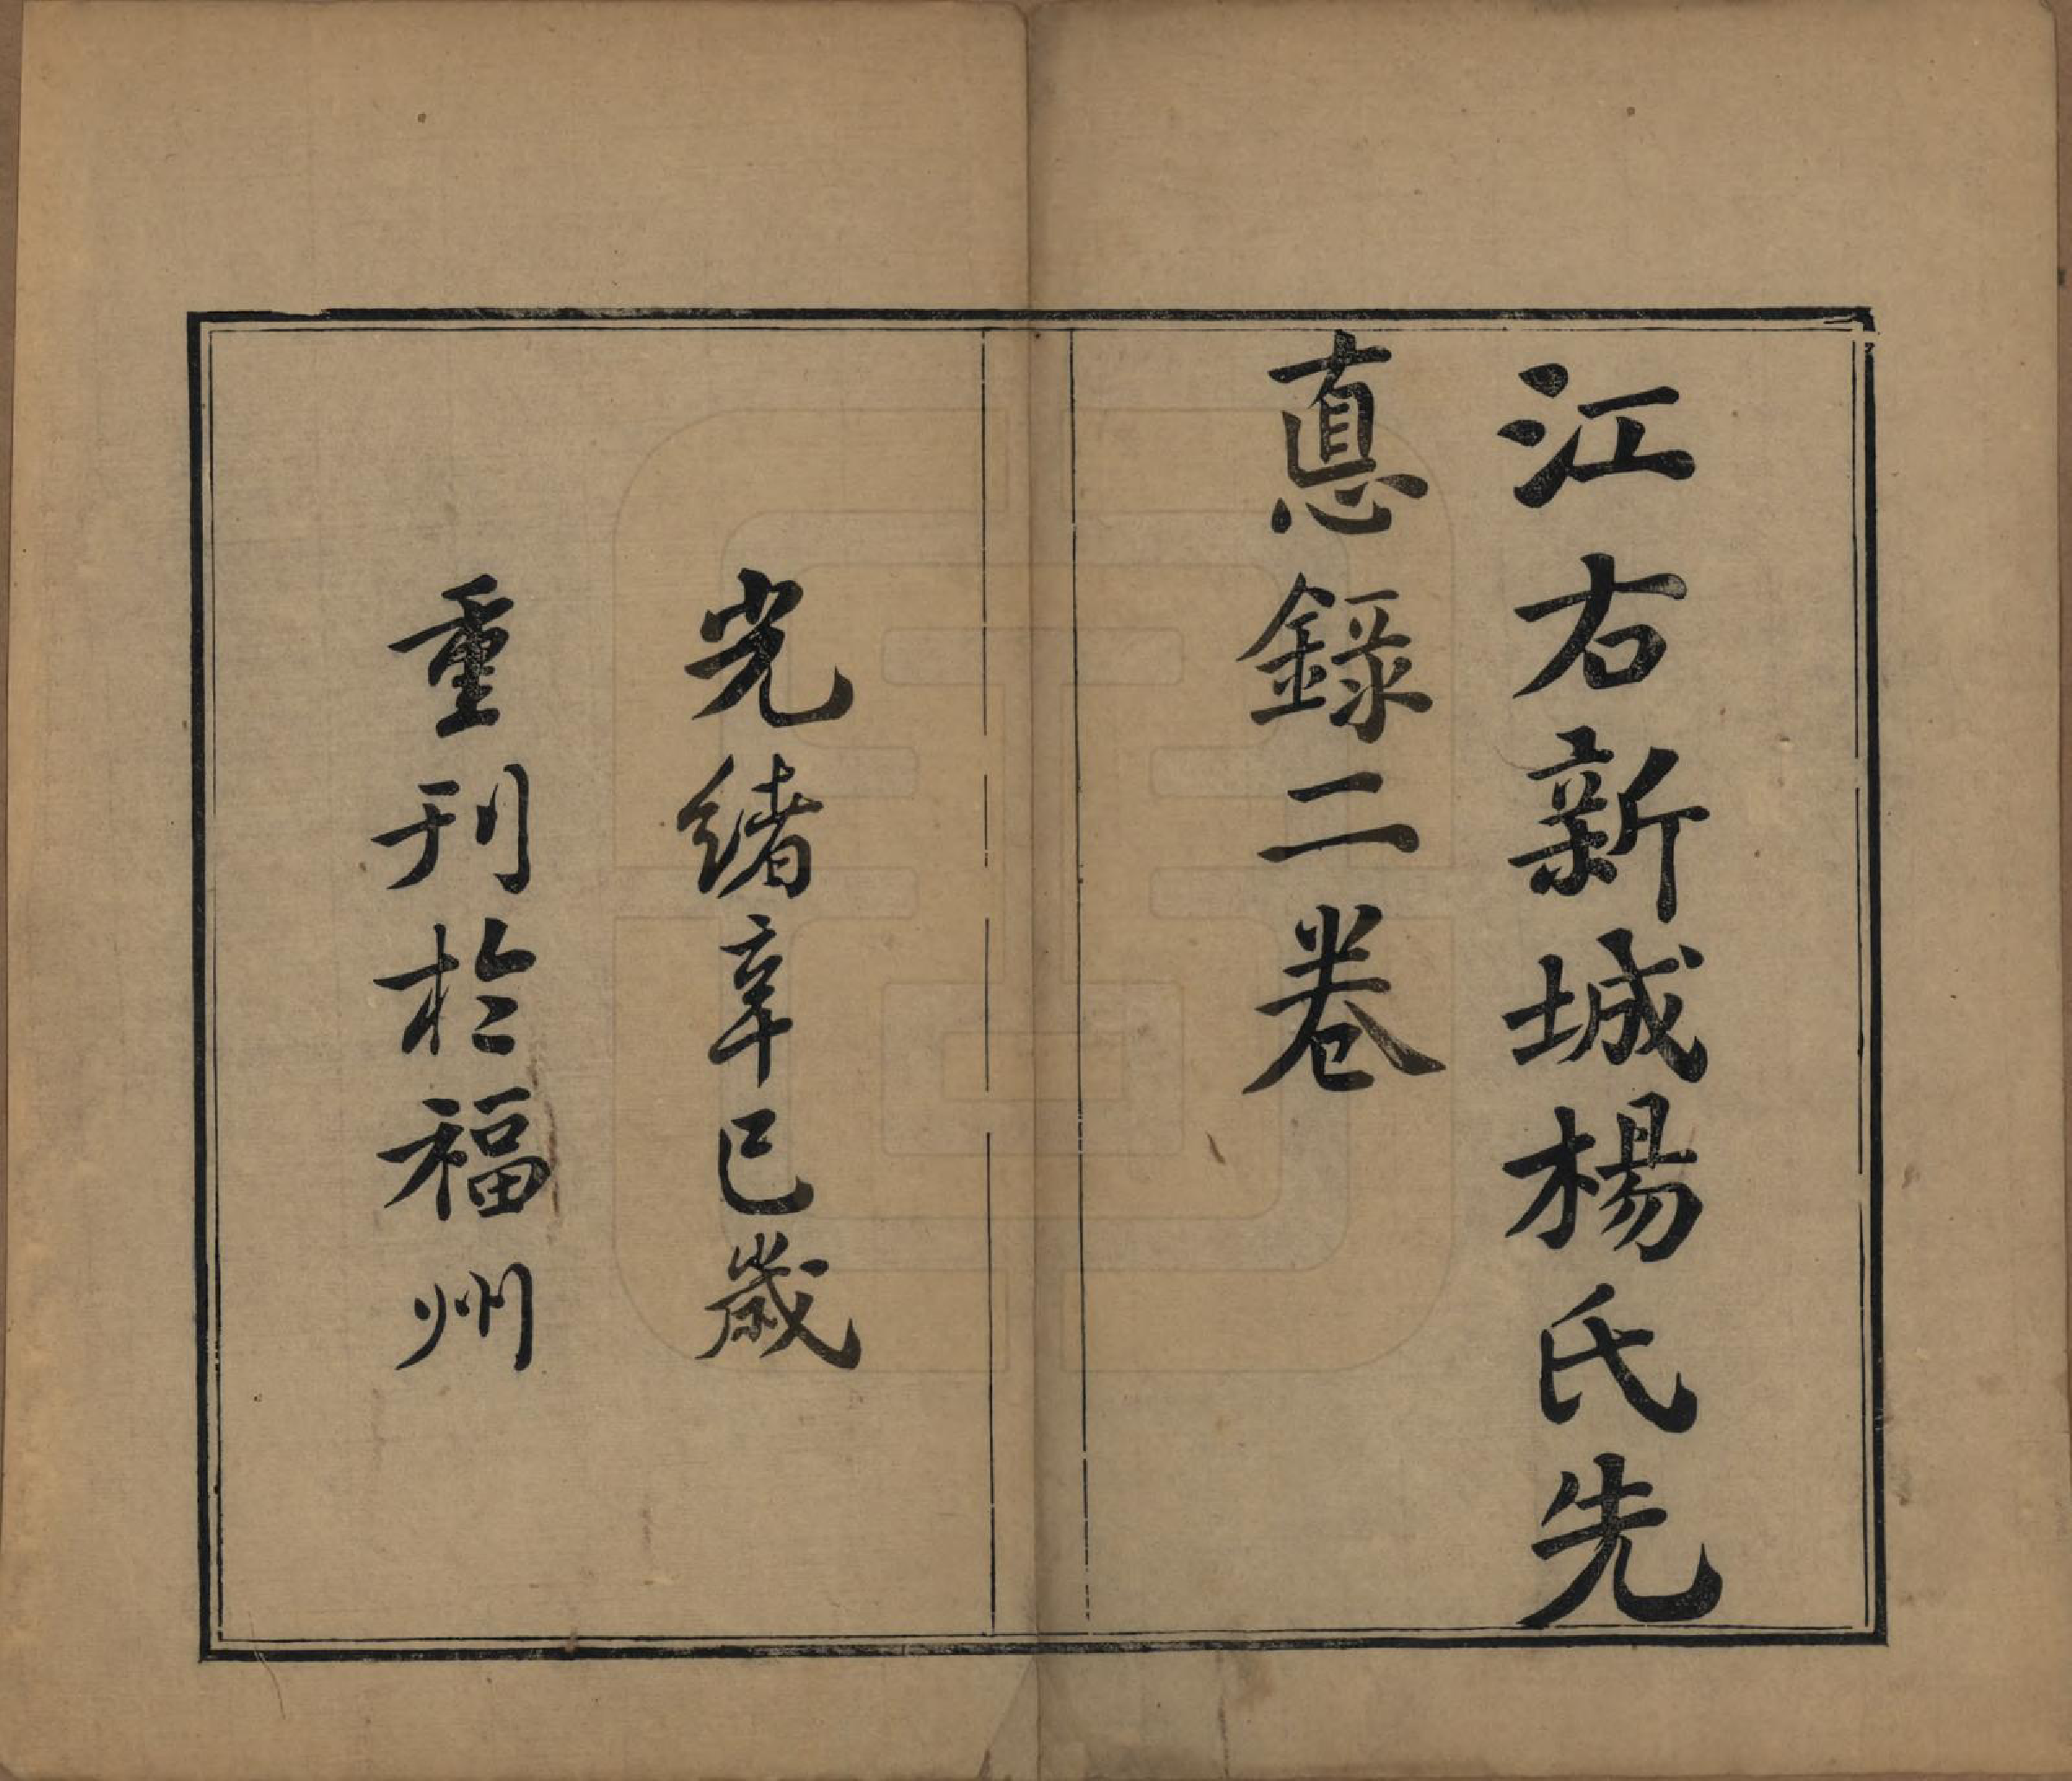 江右新城楊氏先
悳録二卷
光緒辛巳歲
重刊於福州